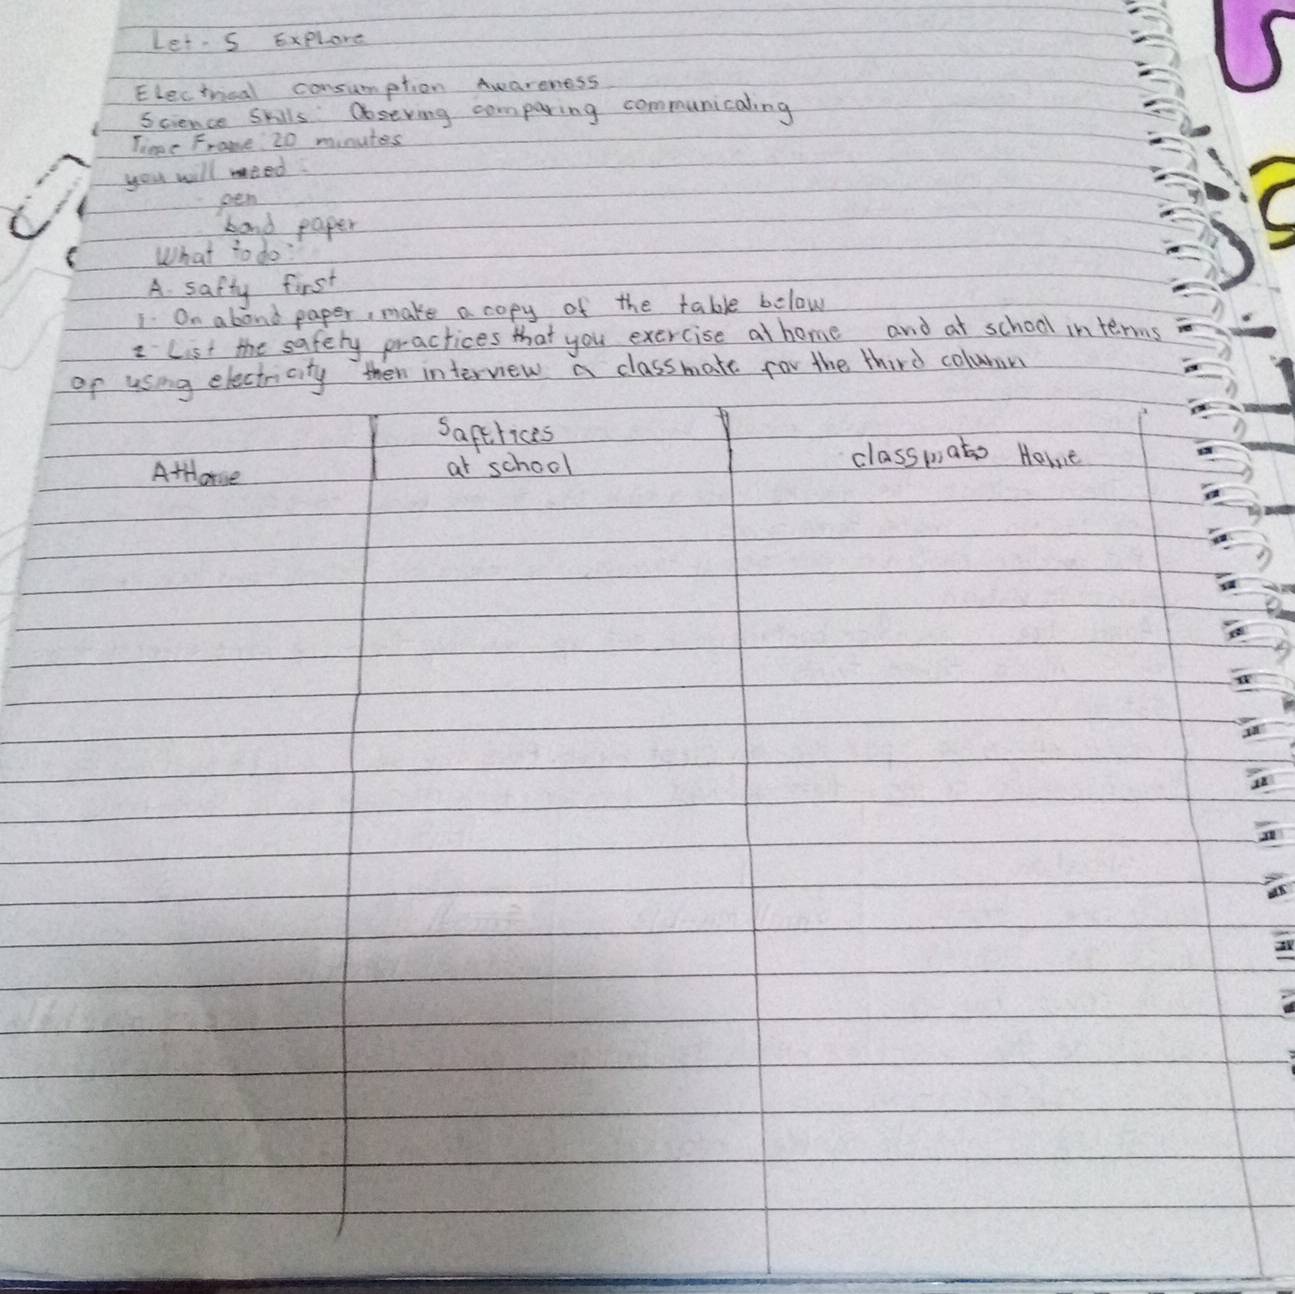 Let's Explore
Electrical consumption Awareness
Science Skills: Obsering comparing communicating
Time Frame: 20 minutes
you will need:
pen
bond paper
What to do:
A. safty first
1. On a bond paper, make a copy of the table below
2. List the safety practices that you exercise at home and at school in terms
of using electricity then interview a classmate for the third column
At Home
at school
classmate Home